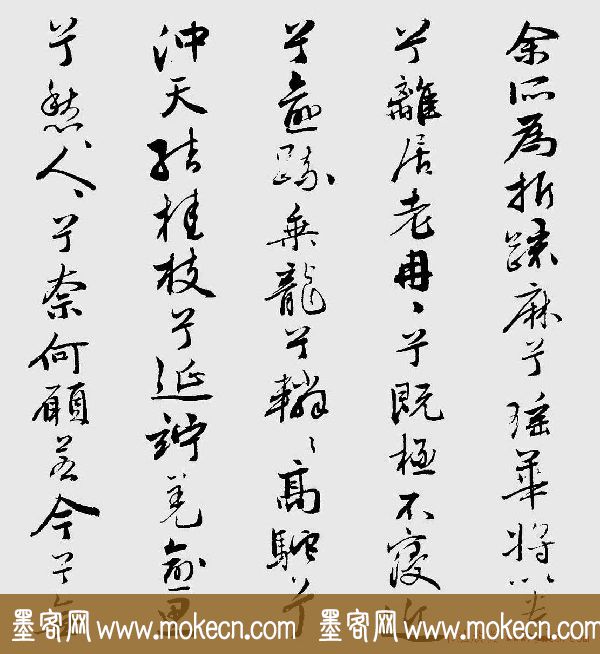 余所為折疏麻兮瑤華將以遺
兮離居老冉〻兮既極不寖近
兮愈疏乘龍兮轔〻高駝兮
沖天結桂枝兮延竚羌愈思
兮愁〻人〻兮奈何願若今兮無
墨客网 www.mokecn.com 墨客网 www.mokecn.com